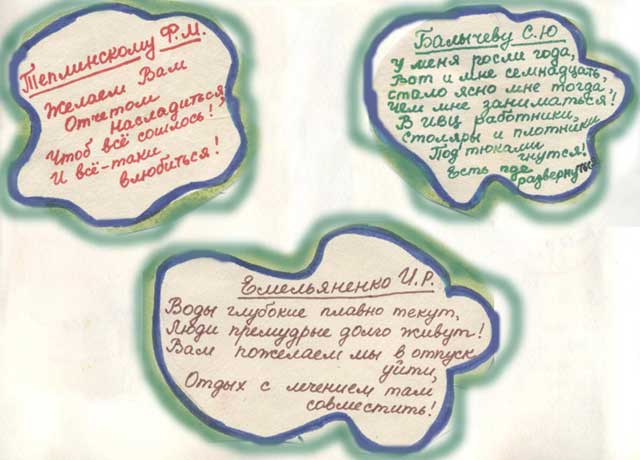 Теплинскому Ф.М.
Желаем Вам
Отчетом
насладиться,
Чтоб всё сошлось!
И всё-таки
влюбиться!
Балычеву С.Ю
У меня росли года,
Вот и мне семнадцать,
стало ясно мне тогда,
Чем мне заниматься!
В ИВЦ работники,
Столяры и плотники
Под тюками
гнутся!
Есть где
развернуться
Емельяненко И.Р.
Воды глубокие плавно текут,
Люди премудрые долго живут!
Вам пожелаем мы в отпуск
уйти,
Отдых с лечением там
совместить!